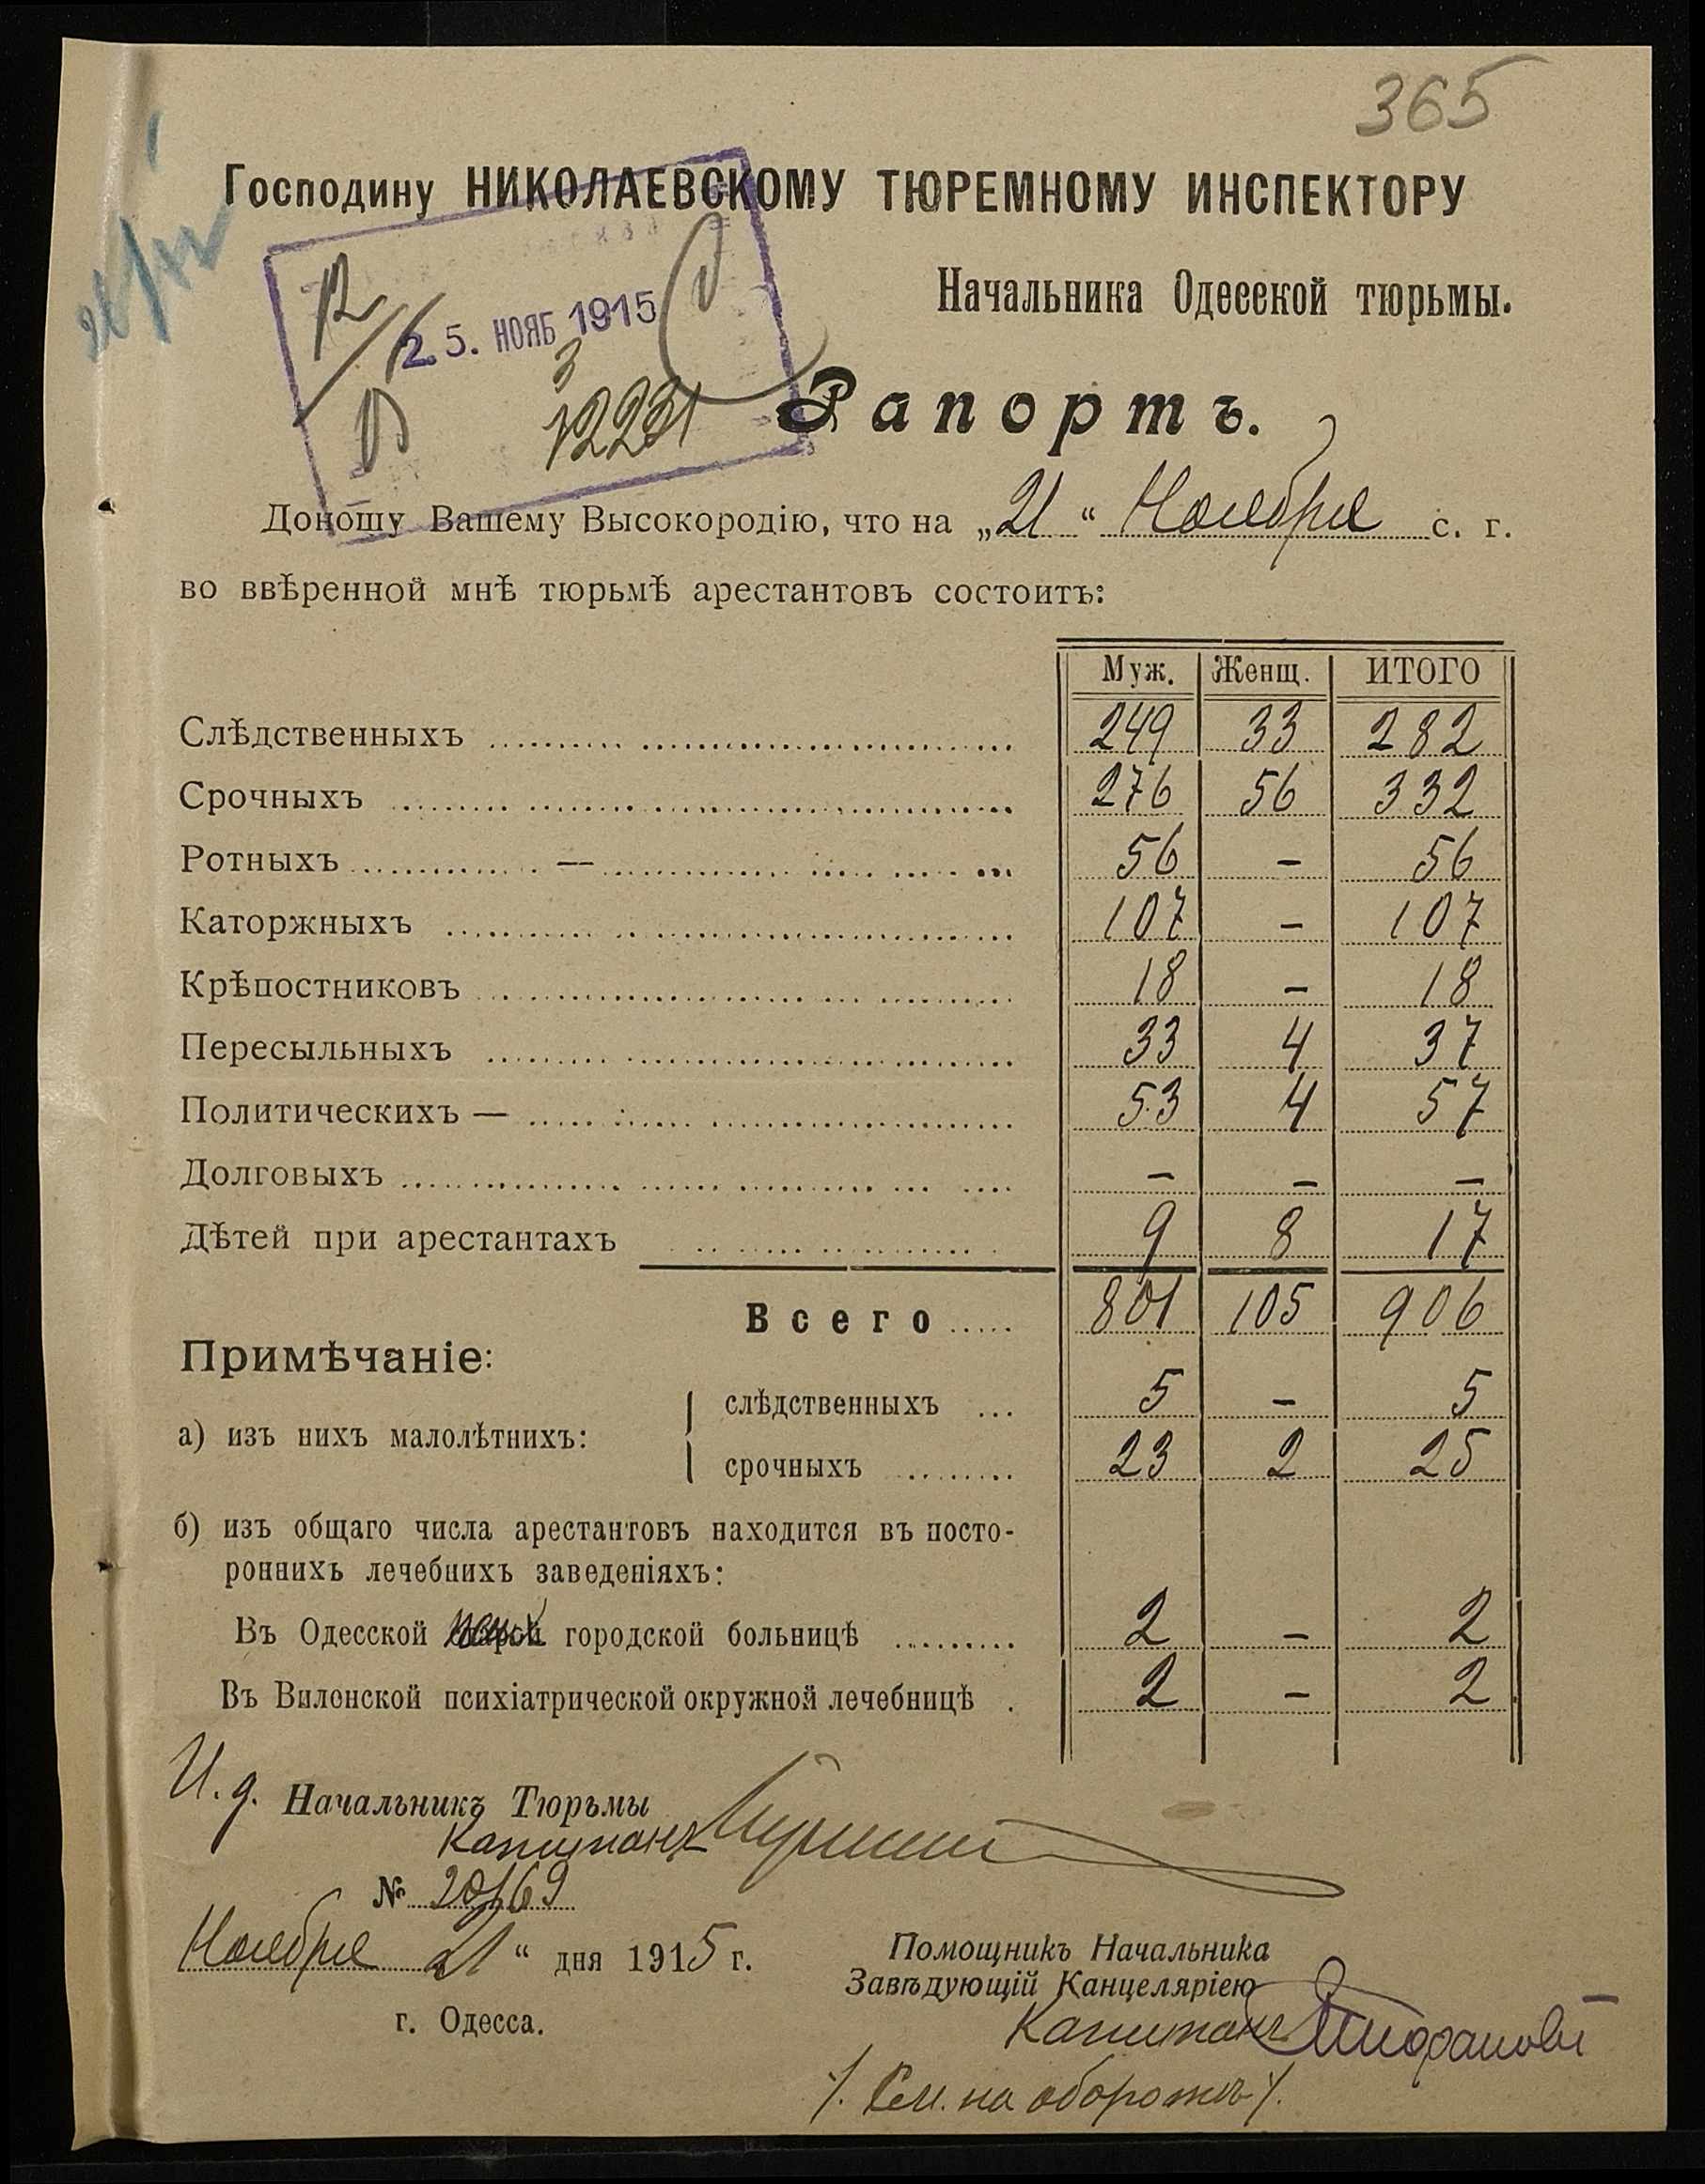 365
Господину НИКОЛАЕВСКОМУ ТЮРЕМНОМУ ИНСПЕКТОРУ
Начальника Одесской тюрьмы.
25. НОЯБ 1915
Рапортъ.
Доношу Вашему Высокородію, что на „21“ Ноября с. г.
во ввѣренной мнѣ тюрьмѣ арестантовъ состоитъ:
Муж. Женщ. ИТОГО
Слѣдственныхъ 249 33 282
Срочныхъ 276 56 332
Ротныхъ — 56 - 56
Каторжныхъ 107 - 107
Крѣпостниковъ 18 - 18
Пересыльныхъ 33 4 37
Политическихъ — 53 4 57
Долговыхъ - - -
Дѣтей при арестантахъ 9 8 17
Всего 801 105 906
Примѣчаніе:
а) изъ нихъ малолѣтнихъ:
слѣдственныхъ 5 - 5
срочныхъ 23 2 25
б) изъ общаго числа арестантовъ находится въ посто-
роннихъ лечебнихъ заведеніяхъ:
Въ Одесской городской больницѣ 2 - 2
Въ Виленской психіатрической окружной лечебницѣ 2 - 2
И. д. Начальникъ Тюрьмы
Капитанъ
№ 20169
Ноября 21 “ дня 1915 г.
г. Одесса.
Помощникъ Начальника
Завѣдующій Канцеляріею
Капитанъ
/. См. на оборотѣ /.